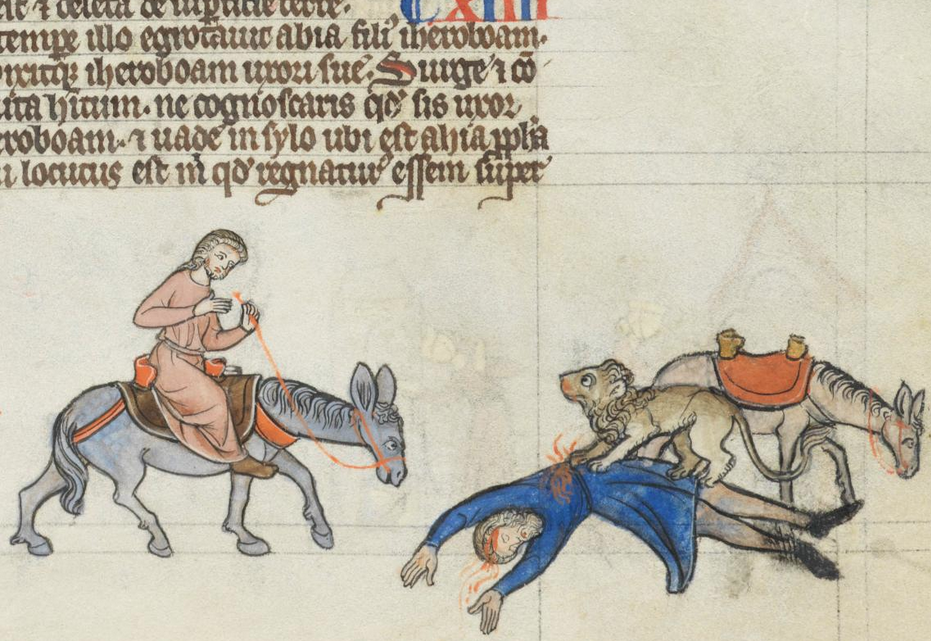 ⁊ deleta de
tempe illo egrotauit abia fili iheroboam.
dixitqz iheroboam uxori sue. Surge ⁊ cō
habitum. ne cognoscaris qd sis uxor
eroboam. ⁊ uade in sylo ubi est ahia ppha
locutus est m qd regnatur essem super
XIIII